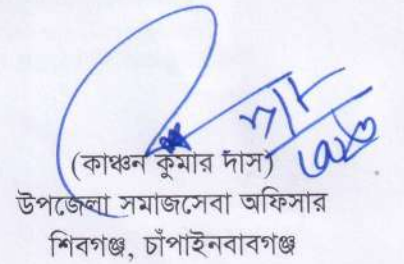 (কাঞ্চন কুমার দাস)
উপজেলা সমাজসেবা অফিসার
শিবগঞ্জ, চাঁপাইনবাবগঞ্জ